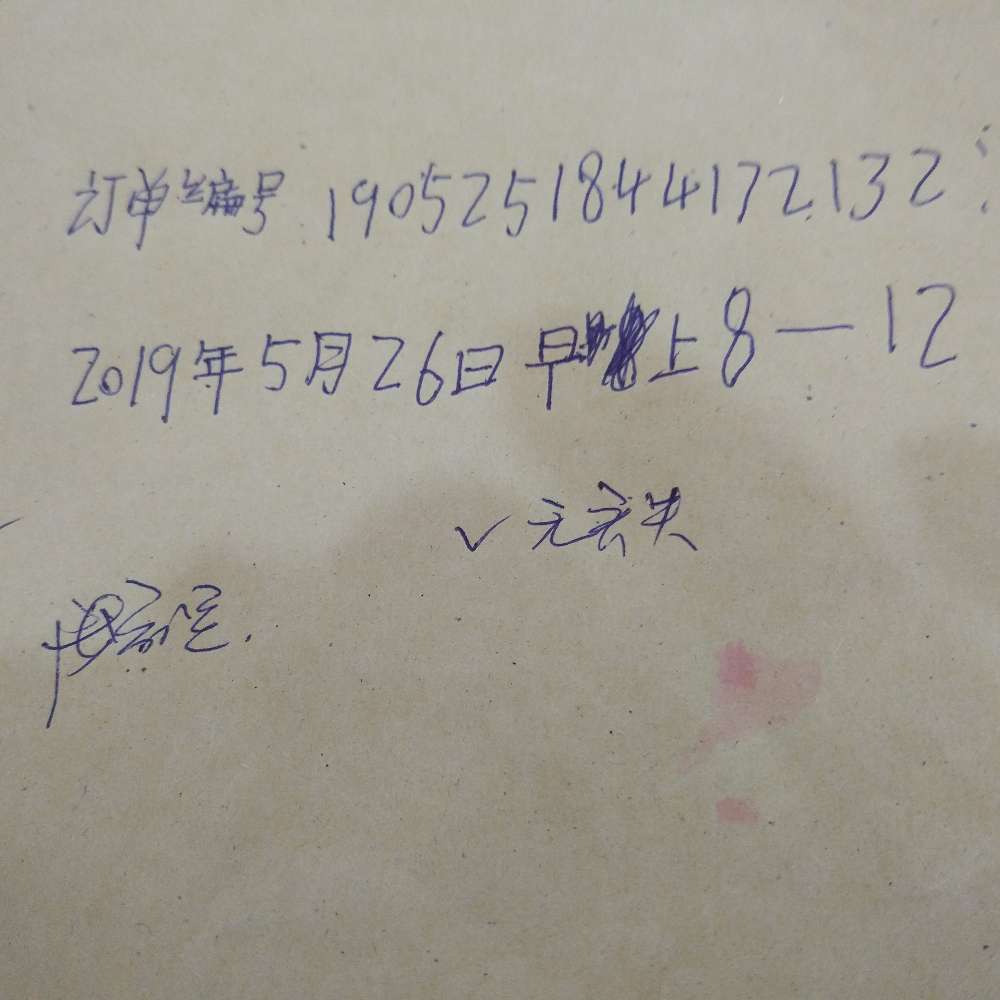 订单编号 1905251844172132
2019年5月26日早上8—12
✓无丢失